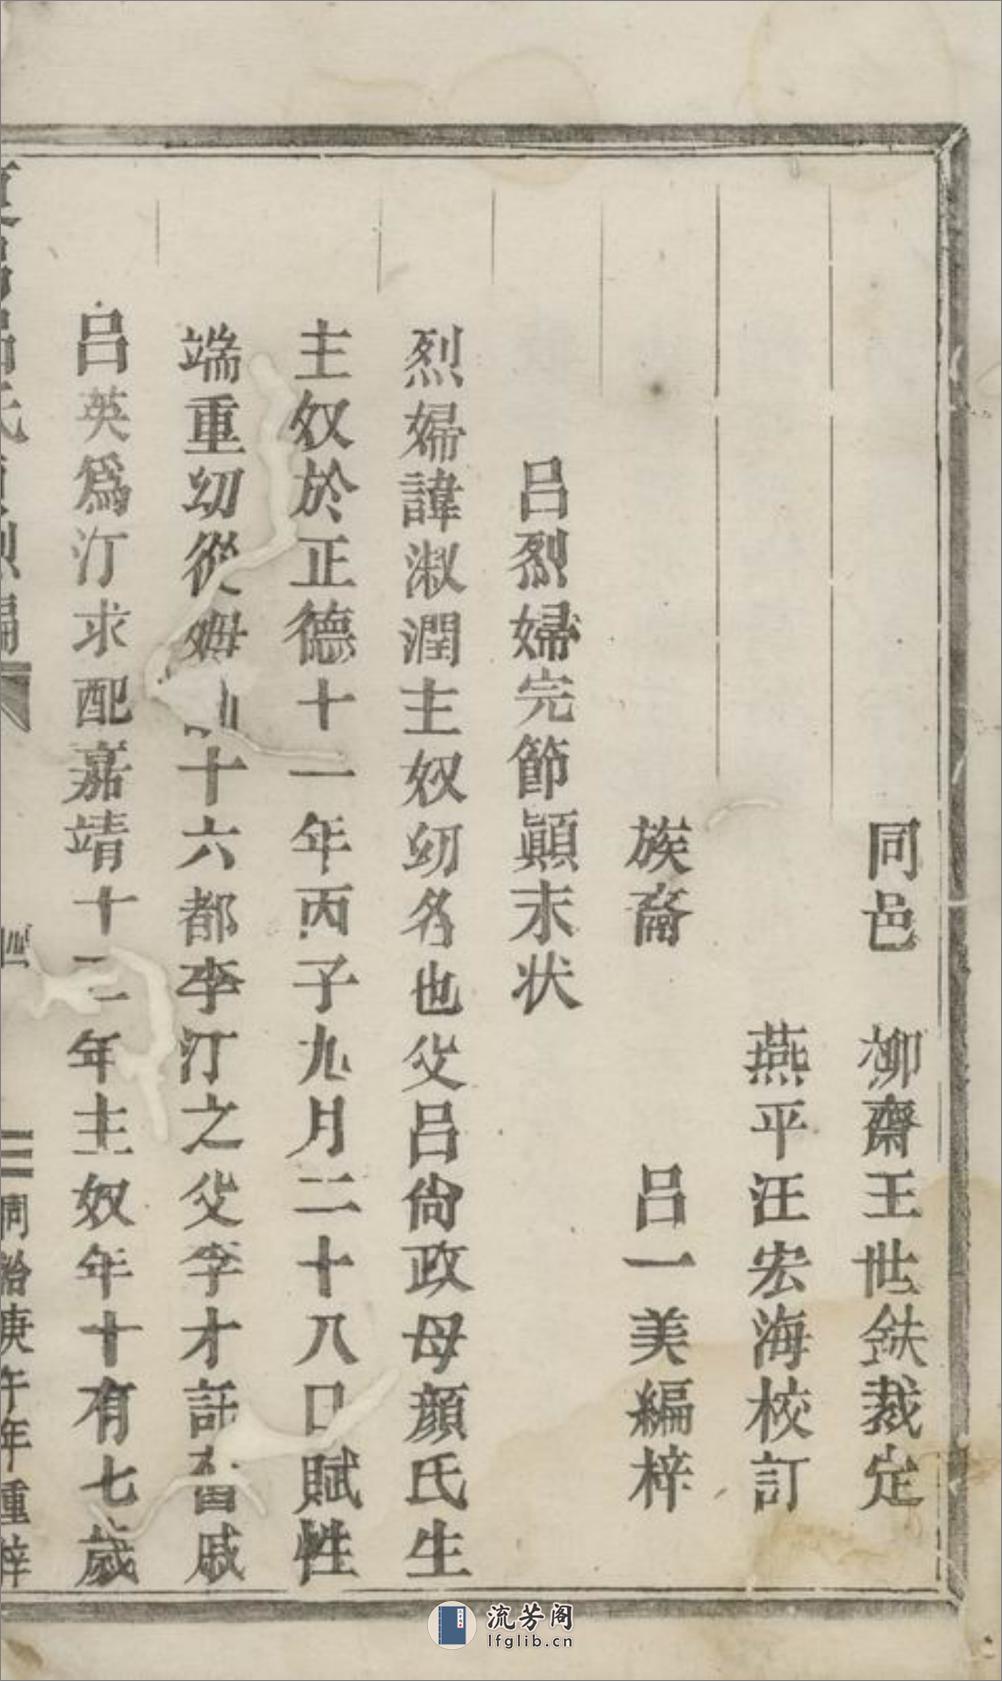 同邑 柳齋王世鈇裁定
燕平汪宏海校訂
族裔 吕一美編梓
吕烈婦完節顛末状
烈婦諱淑潤主奴幼名也父吕尙政母顔氏生
主奴於正德十一年丙子九月二十八日賦性
端重幼從姆訓十六都李汀之父李才託舊戚
吕英爲汀求配嘉靖十二年主奴年十有七歲
氏貞烈編
四
同治庚午年重梓
流芳阁
lfglib.cn